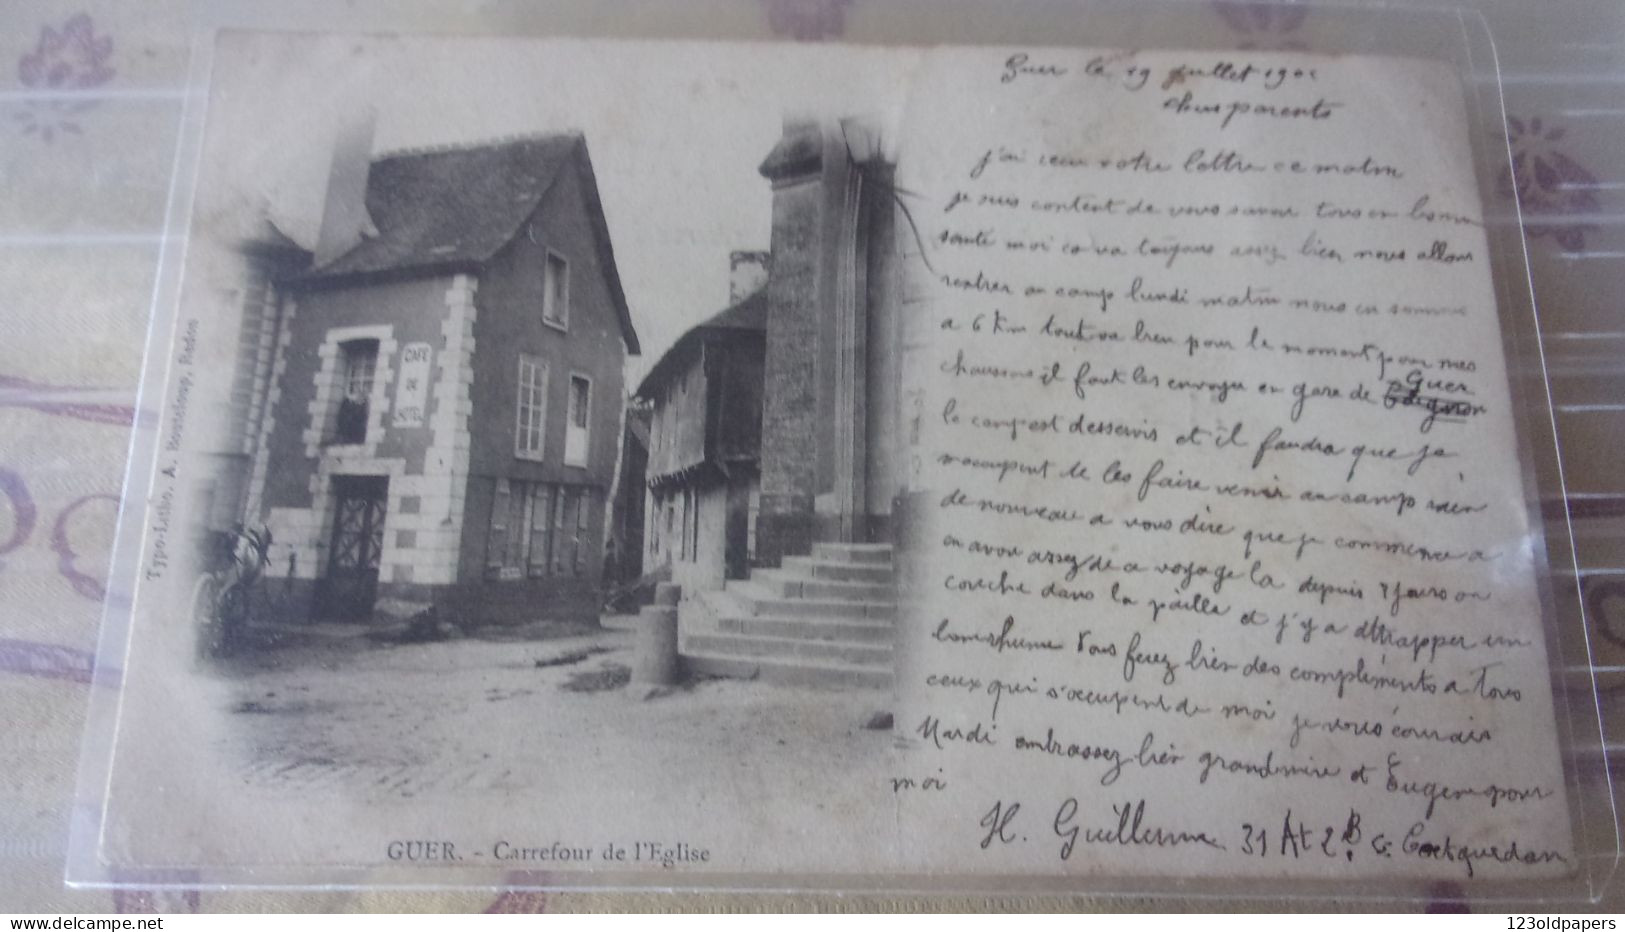 Guer le 19 juillet 190
chers parents
j'ai recu votre lettre ce matin
je suis content de vous savoir tous en bonne
santé moi ca va toujours assez bien, nous allons
rentrer au camp lundi matin nous en sommes
a 6 Km tout va bien pour le moment pour mes
chaussons il faut les envoyer en gare de Guer
le camp est desservis et il faudra que je
m'occupent de les faire venir au camp rien
de nouveau a vous dire que je commence a
en avoir assez de ce voyage la depuis 8 jours on
couche dans la paille et j'y a attrapper un
bon rhume Vous ferez bien des compliments a tous
ceux qui s'occupent de moi je vous écrirais
Mardi embrassez bien grandmère et Eugene pour
moi
H. Guillerme 31 At 2 B Coëtquidan
CAFE
DE
L'HOTEL
Typo-Litho. A. Bouteloup, Redon
GUER. - Carrefour de l'Eglise
delcampe.net
123oldpapers